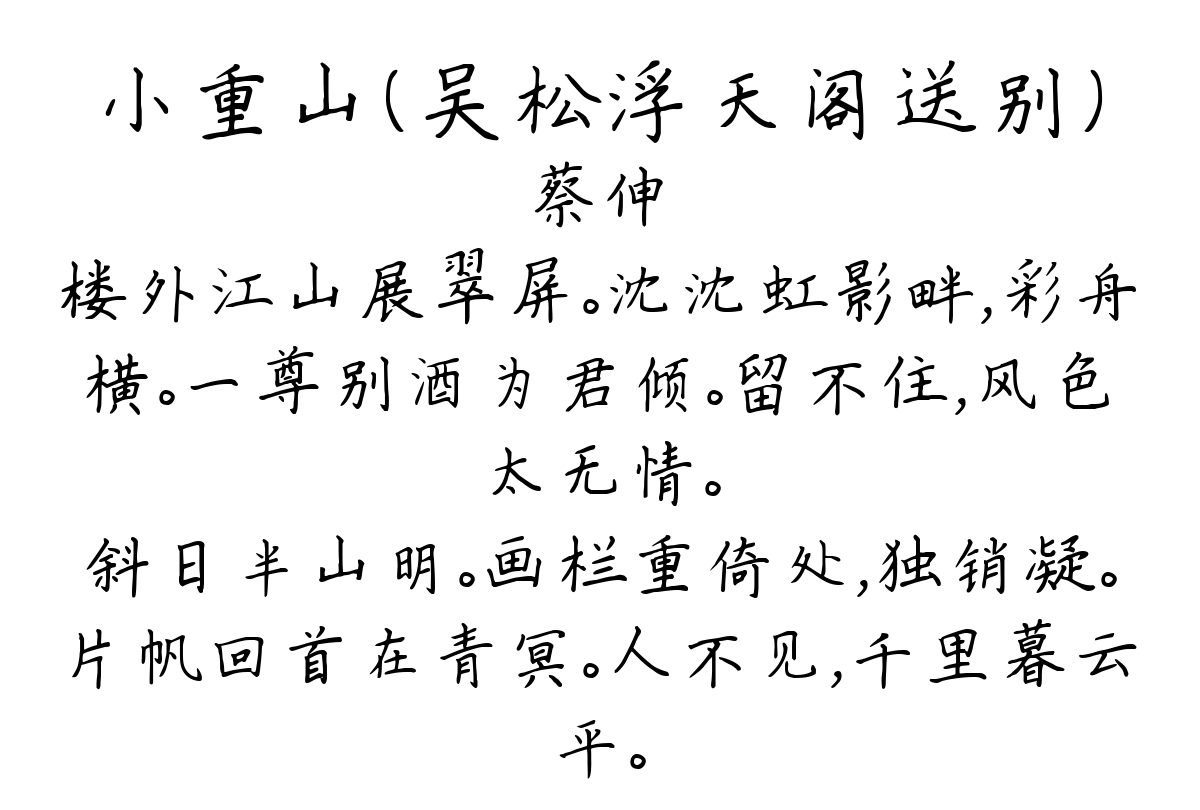 小重山(吴松浮天阁送别)
蔡伸
楼外江山展翠屏。沈沈虹影畔,彩舟
横。一尊别酒为君倾。留不住,风色
太无情。
斜日半山明。画栏重倚处,独销凝。
片帆回首在青冥。人不见,千里暮云
平。